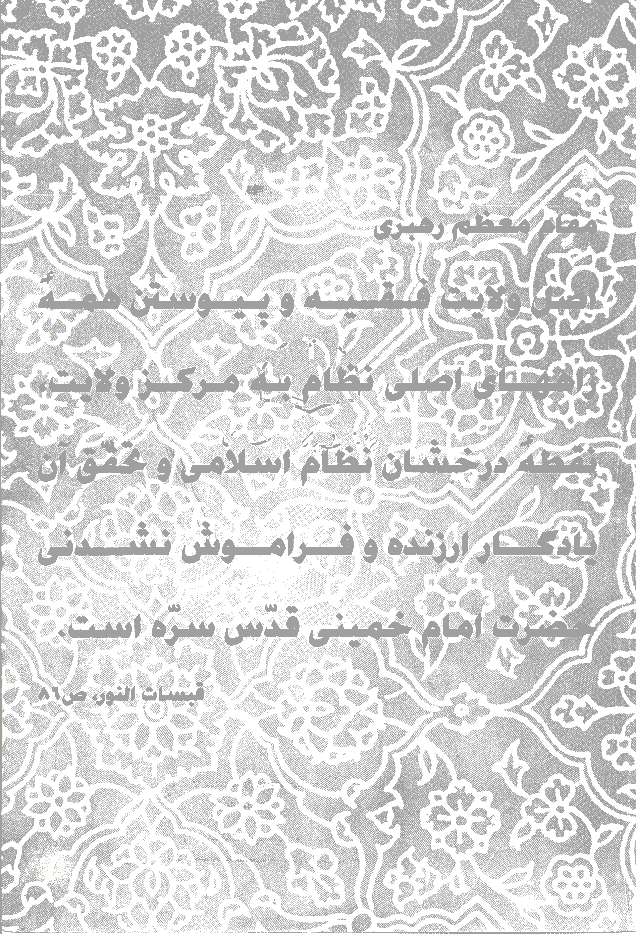 مقام معظم رهبری
اصل ولایت فـقـیـه و پـیـوستن همـهٔ
راههای اصلی نظام به مـرکـز ولایت،
نقطهٔ درخشان نظام اسلامی و تحقّق آن
یادگـار ارزنده و فـرامـوش نشـدنی
حضرت امام خمینی قدّس سرّه است.
قبسات النور، ص۸۶